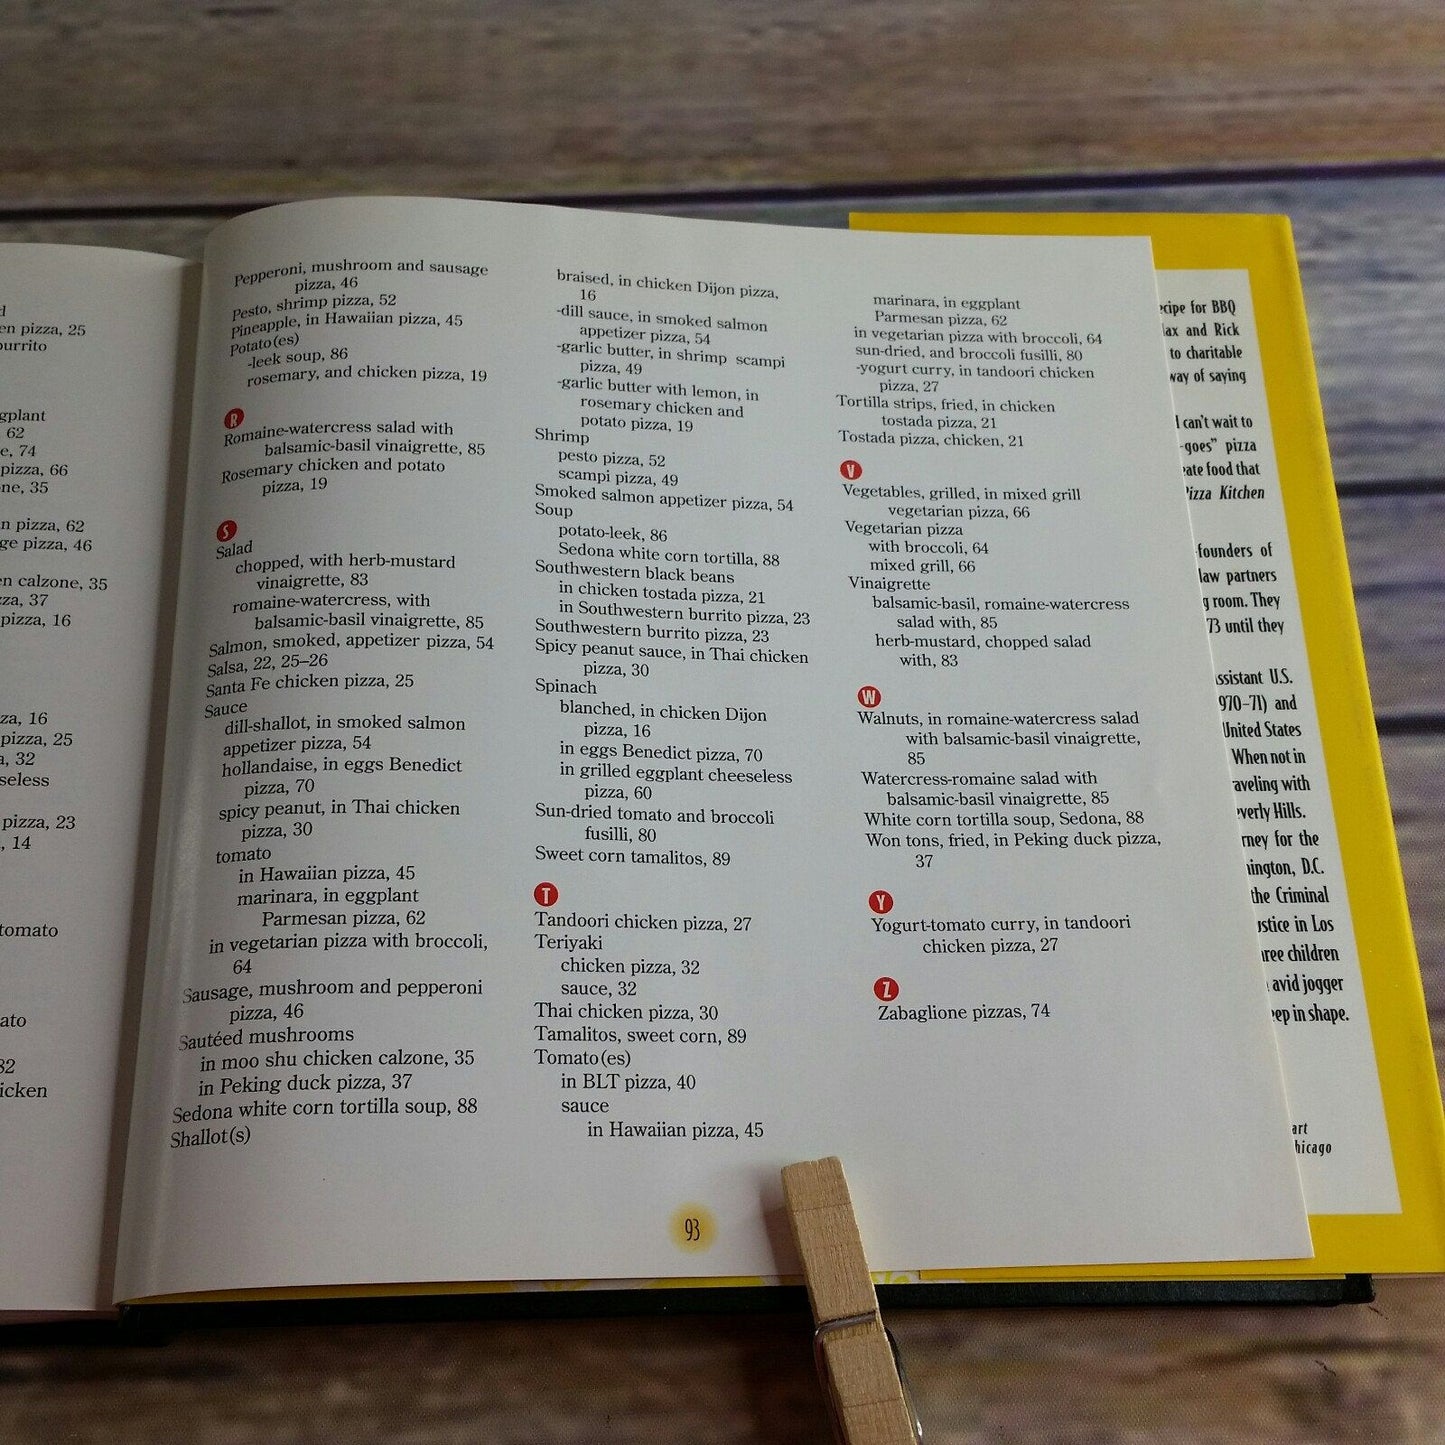 d
en pizza, 25
burrito
gplant
62
e, 74
pizza, 66
ne, 35
n pizza, 62
ge pizza, 46
en calzone, 35
za, 37
pizza, 16
za, 16
pizza, 25
a, 32
seless
pizza, 23
, 14
tomato
ato
82
icken
Pepperoni, mushroom and sausage
pizza, 46
Pesto, shrimp pizza, 52
Pineapple, in Hawaiian pizza, 45
Potato(es)
-leek soup, 86
rosemary, and chicken pizza, 19
R
Romaine-watercress salad with
balsamic-basil vinaigrette, 85
Rosemary chicken and potato
pizza, 19
S
Salad
chopped, with herb-mustard
vinaigrette, 83
romaine-watercress, with
balsamic-basil vinaigrette, 85
Salmon, smoked, appetizer pizza, 54
Salsa, 22, 25–26
Santa Fe chicken pizza, 25
Sauce
dill-shallot, in smoked salmon
appetizer pizza, 54
hollandaise, in eggs Benedict
pizza, 70
spicy peanut, in Thai chicken
pizza, 30
tomato
in Hawaiian pizza, 45
marinara, in eggplant
Parmesan pizza, 62
in vegetarian pizza with broccoli,
64
Sausage, mushroom and pepperoni
pizza, 46
Sautéed mushrooms
in moo shu chicken calzone, 35
in Peking duck pizza, 37
Sedona white corn tortilla soup, 88
Shallot(s)
braised, in chicken Dijon pizza,
16
-dill sauce, in smoked salmon
appetizer pizza, 54
-garlic butter, in shrimp scampi
pizza, 49
-garlic butter with lemon, in
rosemary chicken and
potato pizza, 19
Shrimp
pesto pizza, 52
scampi pizza, 49
Smoked salmon appetizer pizza, 54
Soup
potato-leek, 86
Sedona white corn tortilla, 88
Southwestern black beans
in chicken tostada pizza, 21
in Southwestern burrito pizza, 23
Southwestern burrito pizza, 23
Spicy peanut sauce, in Thai chicken
pizza, 30
Spinach
blanched, in chicken Dijon
pizza, 16
in eggs Benedict pizza, 70
in grilled eggplant cheeseless
pizza, 60
Sun-dried tomato and broccoli
fusilli, 80
Sweet corn tamalitos, 89
T
Tandoori chicken pizza, 27
Teriyaki
chicken pizza, 32
sauce, 32
Thai chicken pizza, 30
Tamalitos, sweet corn, 89
Tomato(es)
in BLT pizza, 40
sauce
in Hawaiian pizza, 45
marinara, in eggplant
Parmesan pizza, 62
in vegetarian pizza with broccoli, 64
sun-dried, and broccoli fusilli, 80
-yogurt curry, in tandoori chicken
pizza, 27
Tortilla strips, fried, in chicken
tostada pizza, 21
Tostada pizza, chicken, 21
V
Vegetables, grilled, in mixed grill
vegetarian pizza, 66
Vegetarian pizza
with broccoli, 64
mixed grill, 66
Vinaigrette
balsamic-basil, romaine-watercress
salad with, 85
herb-mustard, chopped salad
with, 83
W
Walnuts, in romaine-watercress salad
with balsamic-basil vinaigrette,
85
Watercress-romaine salad with
balsamic-basil vinaigrette, 85
White corn tortilla soup, Sedona, 88
Won tons, fried, in Peking duck pizza,
37
Y
Yogurt-tomato curry, in tandoori
chicken pizza, 27
Z
Zabaglione pizzas, 74
93
ecipe for BBQ
lax and Rick
to charitable
way of saying
I can't wait to
-goes" pizza
eate food that
Pizza Kitchen
-founders of
law partners
g room. They
73 until they
ssistant U.S.
970–71) and
United States
When not in
aveling with
everly Hills.
rney for the
hington, D.C.
the Criminal
ustice in Los
hree children
avid jogger
eep in shape.
art
hicago